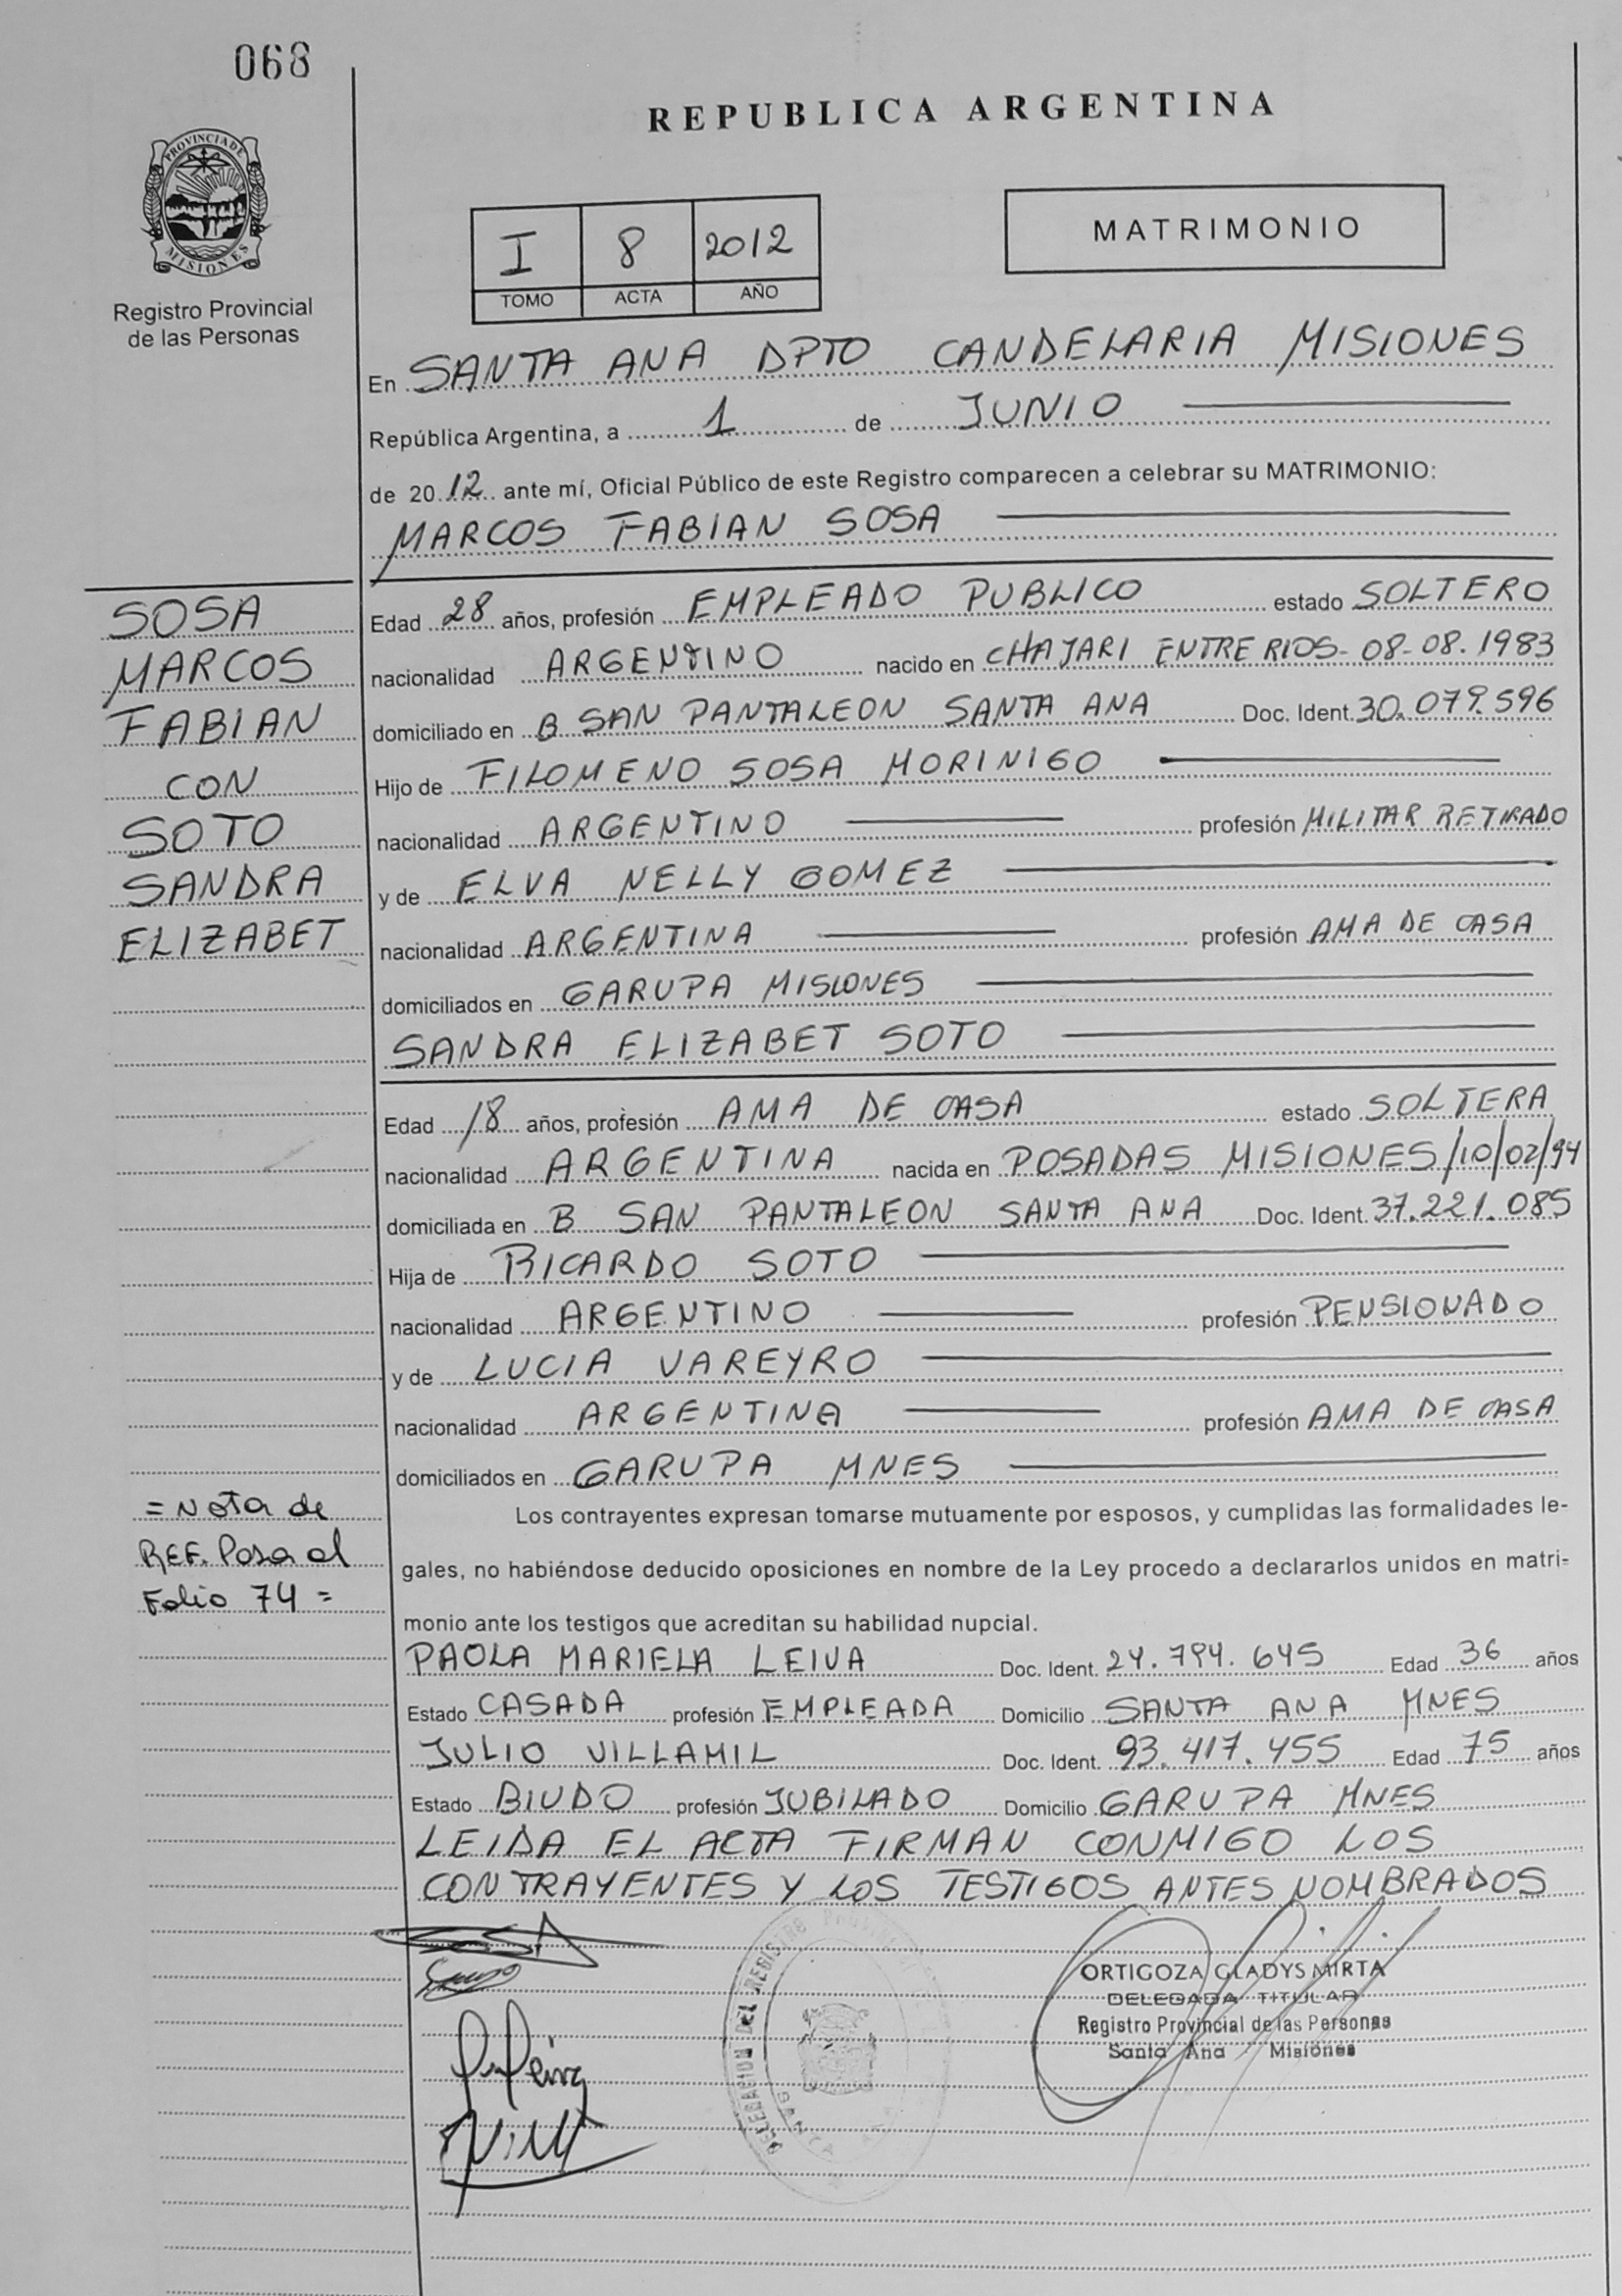 068
REPUBLICA ARGENTINA
PROVINCIA DE
MISIONES
Registro Provincial
de las Personas
I 8 2012
TOMO ACTA AÑO
MATRIMONIO
En SANTA ANA DPTO CANDELARIA MISIONES
República Argentina, a 1 de JUNIO
de 2012 ante mí, Oficial Público de este Registro comparecen a celebrar su MATRIMONIO:
MARCOS FABIAN SOSA
SOSA
MARCOS
FABIAN
CON
SOTO
SANDRA
ELIZABET
Edad 28 años, profesión EMPLEADO PUBLICO estado SOLTERO
nacionalidad ARGENTINO nacido en CHAJARI ENTRE RIOS- 08-08.1983
domiciliado en B SAN PANTALEON SANTA ANA Doc. Ident. 30.079.596
Hijo de FILOMENO SOSA MORINIGO
nacionalidad ARGENTINO profesión MILITAR RETIRADO
y de ELVA NELLY GOMEZ
nacionalidad ARGENTINA profesión AMA DE CASA
domiciliados en GARUPA MISIONES
SANDRA ELIZABET SOTO
Edad 18 años, profesión AMA DE CASA estado SOLTERA
nacionalidad ARGENTINA nacida en POSADAS MISIONES/10/02/94
domiciliada en B SAN PANTALEON SANTA ANA Doc. Ident. 37.221.085
Hija de RICARDO SOTO
nacionalidad ARGENTINO profesión PENSIONADO
y de LUCIA VAREYRO
nacionalidad ARGENTINA profesión AMA DE CASA
domiciliados en GARUPA MNES
= Nota de
REF. Pasa al
Folio 74 =
Los contrayentes expresan tomarse mutuamente por esposos, y cumplidas las formalidades le-
gales, no habiéndose deducido oposiciones en nombre de la Ley procedo a declararlos unidos en matri-
monio ante los testigos que acreditan su habilidad nupcial.
PAOLA MARIELA LEIVA Doc. Ident. 24.794.645 Edad 36 años
Estado CASADA profesión EMPLEADA Domicilio SANTA ANA MNES
JULIO VILLAMIL Doc. Ident. 93.417.455 Edad 75 años
Estado BIUDO profesión JUBILADO Domicilio GARUPA MNES
LEIDA EL ACTA FIRMAN CONMIGO LOS
CONTRAYENTES Y LOS TESTIGOS ANTES NOMBRADOS
DELEGACION DEL REGISTRO
SANTA ANA
ORTIGOZA GLADYS MIRTA
DELEGADA TITULAR
Registro Provincial de las Personas
Santa Ana Misiones